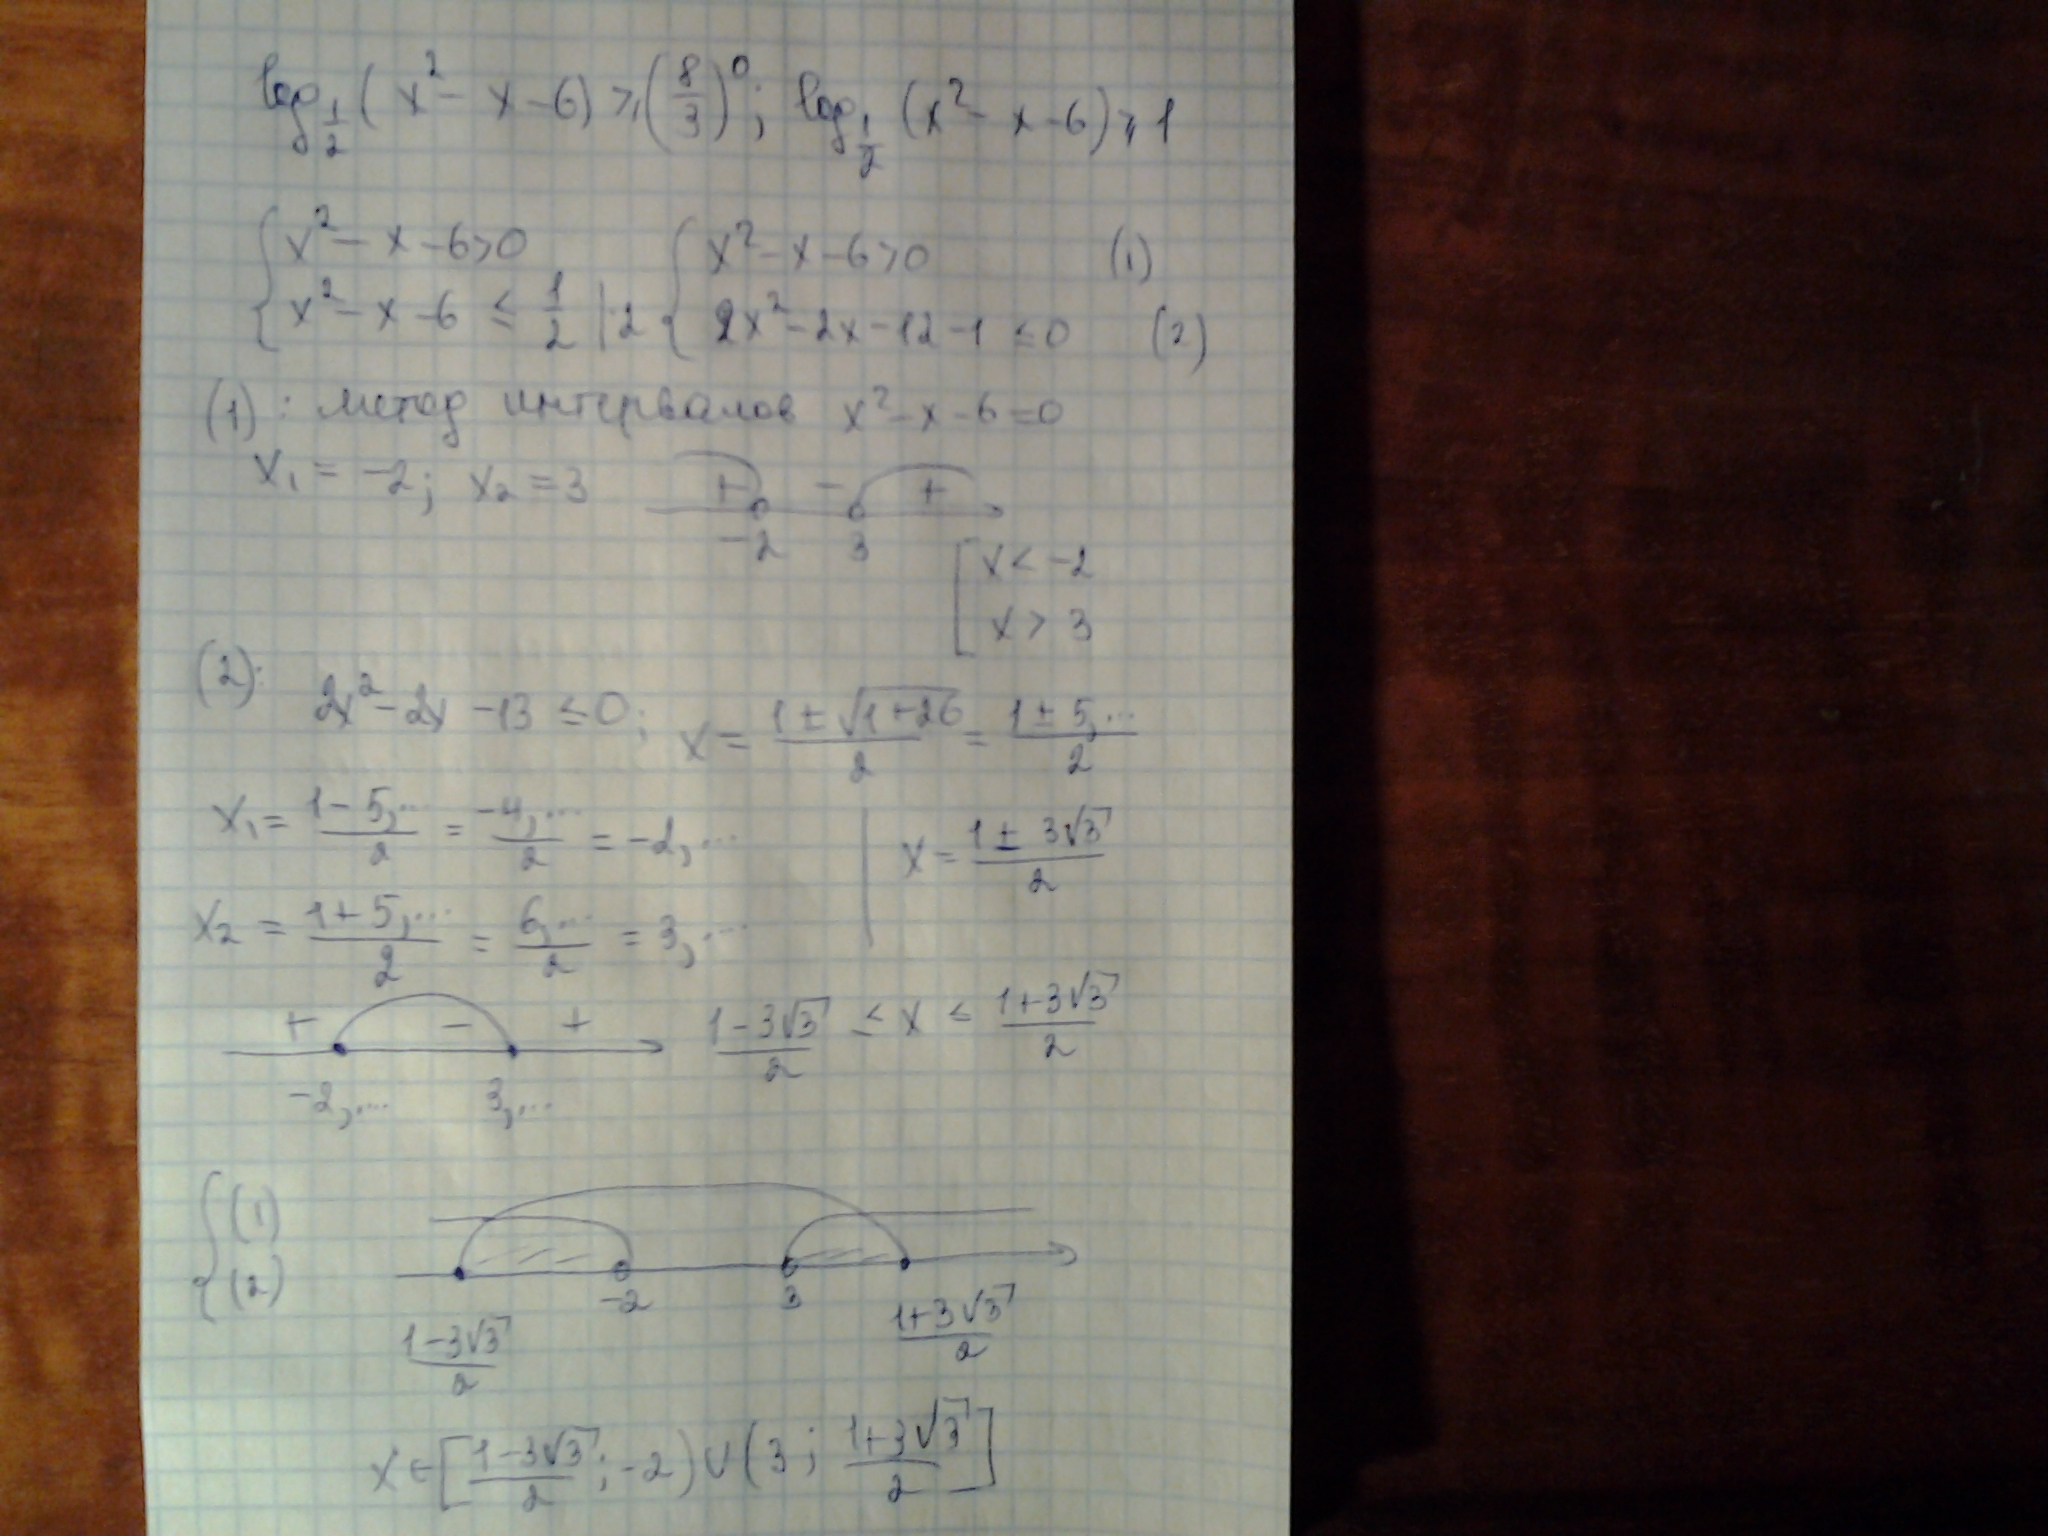 log_{1/2} (x² - x - 6) ≥ (8/3)^0; log_{1/2} (x² - x - 6) ≥ 1
{ x² - x - 6 > 0 { x² - x - 6 > 0 (1)
{ x² - x - 6 ≤ 1/2 | ·2 { 2x² - 2x - 12 - 1 ≤ 0 (2)
(1): метод интервалов x² - x - 6 = 0
x₁ = -2; x₂ = 3 + - +
-2 3
[ x < -2
[ x > 3
(2):
2x² - 2x - 13 ≤ 0; x = (1 ± √(1+26))/2 = (1 ± 5,...)/2
x₁ = (1 - 5,...)/2 = (-4,...)/2 = -2,... | x = (1 ± 3√3)/2
x₂ = (1 + 5,...)/2 = (6,...)/2 = 3,...
+ - + (1 - 3√3)/2 ≤ x ≤ (1 + 3√3)/2
-2,... 3,...
{ (1)
{ (2)
-2 3
(1 - 3√3)/2 (1 + 3√3)/2
x ∈ [(1 - 3√3)/2; -2) ∪ (3; (1 + 3√3)/2]